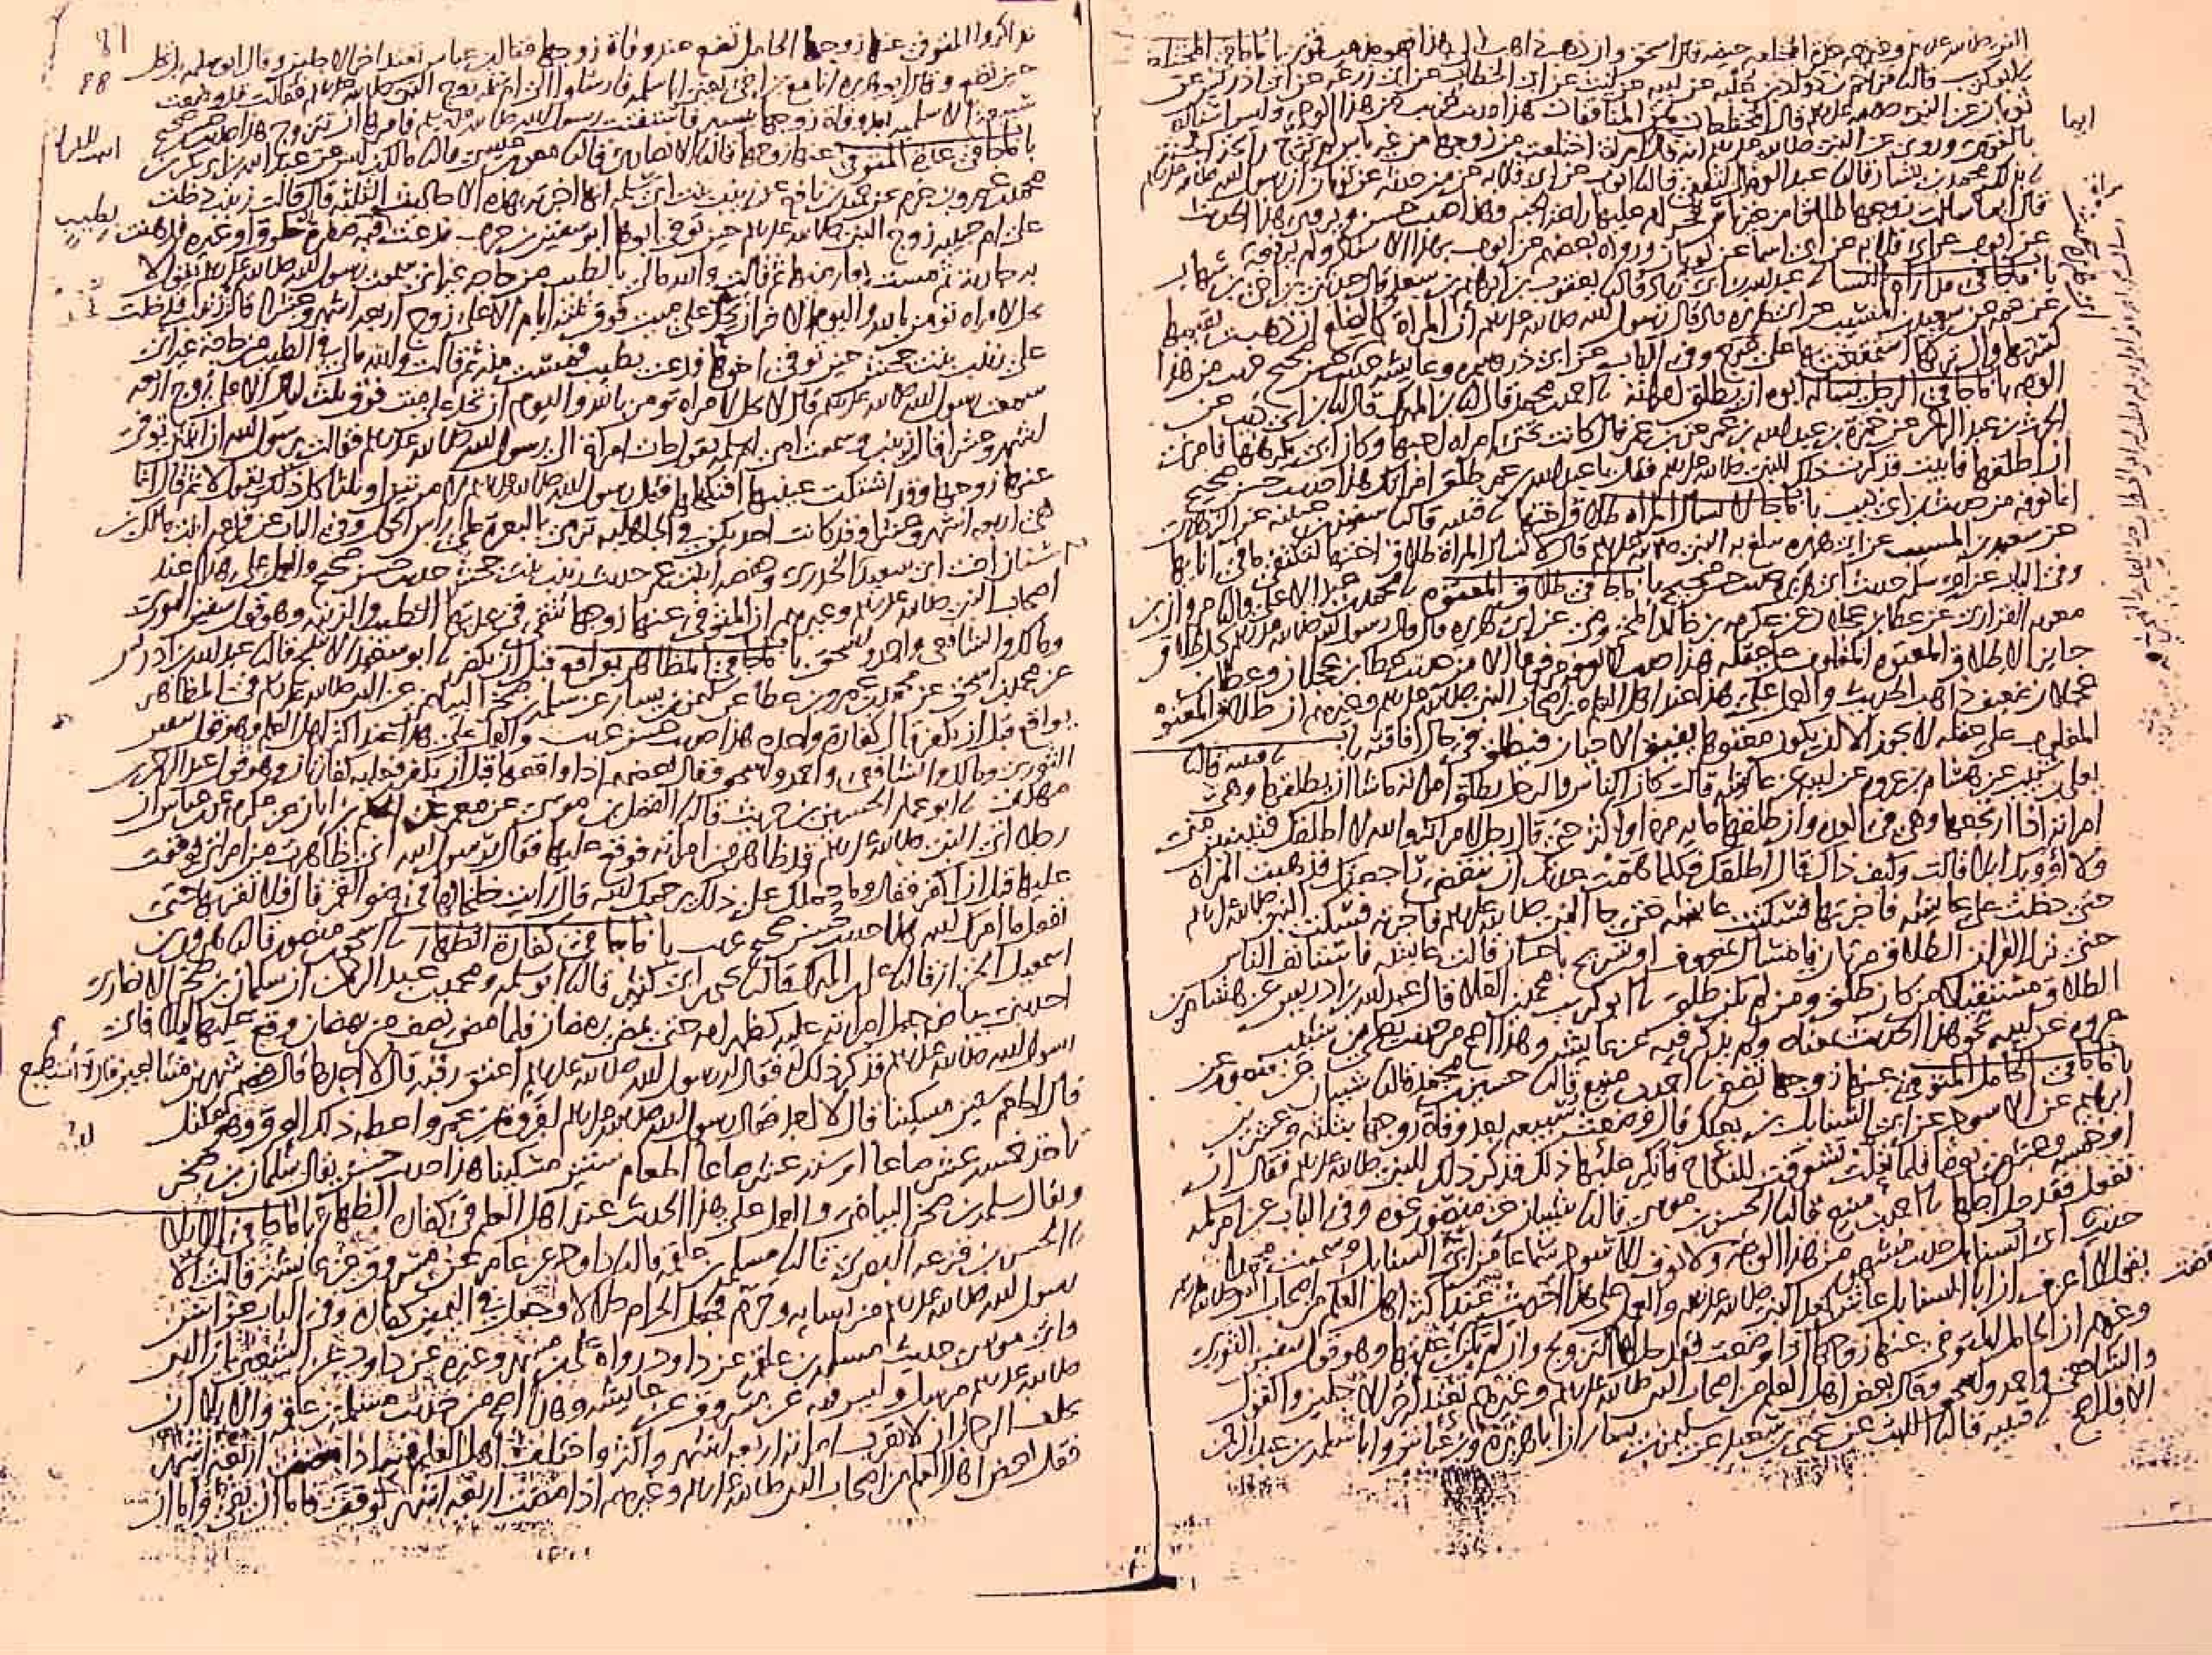 النبي صلى الله عليه وسلم وغيرهم عدة المختلعة حيضة قال اسحق وان ذهب ذاهب الى هذا فهو مذهب قوي باب ما جا في المختلعات
ابو كريب قال مزاحم بن ذواد بن علبة عن ابيه عن ليث عن ابي الخطاب عن ابي زرعة عن ابي ادريس عن
ثوبان عن النبي صلى الله عليه وسلم قال المختلعات هن المنافقات هذا حديث غريب من هذا الوجه وليس اسناده
بالقوي وروي عن النبي صلى الله عليه وسلم انه قال ايما امراة اختلعت من زوجها من غير باس لم ترح رايحة الجنة
محمد بن بشار قال عبد الوهاب الثقفي قال ايوب عن ابي قلابة عمن حدثه عن ثوبان ان رسول الله صلى الله عليه وسلم
قال ايما سالت زوجها طلاقا من غير باس فحرام عليها رايحة الجنة وهذا حديث حسن ويروى هذا الحديث
عن ايوب عن ابي قلابة عن ابي اسما عن ثوبان ورواه بعضهم عن ايوب بهذا الاسناد ولم يرفعه
باب ما جا في مداراة النسا عبد الله بن ابي زياد قال يعقوب بن ابراهيم بن سعد قال ابن اخي بن شهاب
عن عمه عن سعيد بن المسيب عن ابي هريرة قال قال رسول الله صلى الله عليه وسلم ان المراة كالضلع ان ذهبت تقيمها
كسرتها وان تركتها استمتعت بها على عوج وفي الباب عن ابي ذر وسمرة وعايشة حديث حسن صحيح غريب من هذا
الوجه باب ما جا في الرجل يساله ابوه ان يطلق امراته احمد بن محمد قال ابن المبارك قال ابن ابي ذيب عن
الحرث بن عبد الرحمن عن حمزة بن عبد الله بن عمر عن بن عمر قال كانت تحتي امراة احبها وكان ابي يكرهها فامرني
ان اطلقها فابيت فذكرت ذلك للنبي صلى الله عليه وسلم فقال يا عبد الله بن عمر طلق امراتك هذا حديث حسن صحيح
انما نعرفه من حديث بن ابي ذيب باب ما جا لا تسال المراة طلاق اختها قتيبة قال سفين بن عيينة عن الزهري
عن سعيد بن المسيب عن ابي هريرة يبلغ به النبي صلى الله عليه وسلم قال لا تسال المراة طلاق اختها لتكتفئ ما في انايها
وفي الباب عن ام سلمة حديث ابي هريرة حديث حسن صحيح باب ما جا في طلاق المعتوه محمد بن عبد الاعلى قال مروان بن
معوية الفزاري عن عطا بن عجلان عن عكرمة بن خالد المخزومي عن ابي هريرة قال قال رسول الله صلى الله عليه وسلم كل طلاق
جايز الا طلاق المعتوه المغلوب على عقله هذا حديث لا نعرفه مرفوعا الا من حديث عطا بن عجلان وعطا بن
عجلان ضعيف ذاهب الحديث والعمل على هذا عند اهل العلم من اصحاب النبي صلى الله عليه وسلم وغيرهم ان طلاق المعتوه
المغلوب على عقله لا يجوز الا ان يكون معتوها يفيق الاحيان فيطلق في حال افاقته باب قتيبة قال
يعلى بن شبيب عن هشام بن عروة عن ابيه عن عايشة قالت كان الناس والرجل يطلق امراته ما شا ان يطلقها وهي
امراته اذا ارتجعها وهي في العدة وان طلقها ماية مرة او اكثر حتى قال رجل لامراته والله لا اطلقك فتبيني مني
ولا اوويك ابدا قالت وكيف ذاك قال اطلقك فكلما همت عدتك ان تنقضي راجعتك فذهبت المراة
حتى دخلت على عايشة فاخبرتها فسكتت عايشة حتى جا النبي صلى الله عليه وسلم فاخبرته فسكت النبي صلى الله عليه وسلم
حتى نزل القران الطلاق مرتان فامساك بمعروف او تسريح باحسان قالت عايشة فاستانف الناس
الطلاق مستقبلا من كان طلق ومن لم يكن طلق ابو كريب محمد بن العلا قال عبد الله بن ادريس عن هشام بن
عروة عن ابيه نحو هذا الحديث بمعناه ولم يذكر فيه عن عايشة وهذا اصح من حديث يعلى بن شبيب
باب ما جا في الحامل المتوفى عنها زوجها تضع احمد بن منيع قال حسين بن محمد قال شيبان عن منصور عن
ابراهيم عن الاسود عن ابي السنابل بن بعكك قال وضعت سبيعة بعد وفاة زوجها بثلثة وعشرين
او خمسة وعشرين يوما فلما تعلت تشوفت للنكاح فانكر عليها ذلك فذكر ذلك للنبي صلى الله عليه وسلم فقال ان
تفعل فقد حل اجلها احمد بن منيع قال الحسن بن موسى قال شيبان عن منصور نحوه وفي الباب عن ام سلمة
حديث ابي السنابل حديث مشهور من هذا الوجه ولا نعرف للاسود سماعا من ابي السنابل وسمعت محمدا
يقول لا اعرف ان ابا السنابل عاش بعد النبي صلى الله عليه وسلم والعمل على هذا الحديث عند اكثر اهل العلم من اصحاب النبي صلى الله عليه وسلم
وغيرهم ان الحامل المتوفى عنها زوجها اذا وضعت فقد حل لها التزويج وان لم تكن انقضت عدتها وهو قول سفين الثوري
والشافعي واحمد واسحق وقال بعض اهل العلم من اصحاب النبي صلى الله عليه وسلم وغيرهم تعتد اخر الاجلين والقول
الاول اصح قتيبة قال الليث عن يحيى بن سعيد عن سليمن بن يسار ان ابا هريرة وبن عباس وابا سلمة بن عبد الرحمن
ايما
تذاكروا المتوفى عنها زوجها الحامل تضع عند وفاة زوجها فقال بن عباس تعتد اخر الاجلين وقال ابو سلمة بل تحل
حين تضع وقال ابو هريرة انا مع بن اخي يعني ابا سلمة فارسلوا الى ام سلمة زوج النبي صلى الله عليه وسلم فقالت قد وضعت
سبيعة الاسلمية بعد وفاة زوجها بيسير فاستفتت رسول الله صلى الله عليه وسلم فامرها ان تتزوج هذا حديث حسن صحيح
باب ما جا في عدة المتوفى عنها زوجها قال الانصاري قال معن بن عيسى قال مالك بن انس عن عبد الله بن ابي بكر بن
محمد بن عمرو بن حزم عن حميد بن نافع عن زينب بنت ابي سلمة انها اخبرته بهذه الاحاديث الثلثة قال قالت زينب دخلت
على ام حبيبة زوج النبي صلى الله عليه وسلم حين توفي ابوها ابو سفين بن حرب فدعت فيه صفرة خلوق او غيره فدهنت
به جارية ثم مست بعارضيها ثم قالت والله مالي بالطيب من حاجة غير اني سمعت رسول الله صلى الله عليه وسلم يقول لا
يحل لامراة تومن بالله واليوم الاخر ان تحد على ميت فوق ثلثة ايام الا على زوج اربعة اشهر وعشرا قالت زينب فدخلت
على زينب بنت جحش حين توفي اخوها فدعت بطيب فمست منه ثم قالت والله مالي في الطيب من حاجة غير اني
سمعت رسول الله صلى الله عليه وسلم قال لا يحل لامراة تومن بالله واليوم ان تحد على ميت فوق ثلث ليال الا على زوج اربعة
اشهر وعشرا قالت زينب وسمعت امي ام سلمة تقول جات امراة الى رسول الله صلى الله عليه وسلم فقالت يرسول الله ان ابنتي توفي
عنها زوجها وقد اشتكت عينيها افنكحلها فقال رسول الله صلى الله عليه وسلم لا مرتين او ثلثا كل ذلك يقول لا ثم قال انما
هي اربعة اشهر وعشرا وقد كانت احداكن في الجاهلية ترمي بالبعرة على راس الحول وفي الباب عن فريعة ابنة مالك بن
سنان اخت ابي سعيد الخدري وحفصة ابنة عمر حديث زينب بنت جحش حديث حسن صحيح والعمل على هذا عند
اصحاب النبي صلى الله عليه وسلم وغيرهم ان المتوفى عنها زوجها تتقي في عدتها الطيب والزينة وهو قول سفين الثوري
ومالك والشافعي واحمد واسحق باب ما جا في المظاهر يواقع قبل ان يكفر ابو سعيد الاشج قال عبد الله بن ادريس
عن محمد بن اسحق عن محمد بن عمرو بن عطا عن سليمن بن يسار عن سلمة بن صخر البياضي عن النبي صلى الله عليه وسلم في المظاهر
يواقع قبل ان يكفر قال كفارة واحدة هذا حديث حسن غريب والعمل على هذا عند اكثر اهل العلم وهو قول سفين
الثوري ومالك والشافعي واحمد واسحق وقال بعضهم اذا واقعها قبل ان يكفر فعليه كفارتان وهو قول عبد الرحمن بن
مهدي ابو عمار الحسين بن حريث قال الفضل بن موسى عن معمر عن الحكم بن ابان عن عكرمة عن بن عباس ان
رجلا اتى النبي صلى الله عليه وسلم قد ظاهر من امراته فوقع عليها فقال يرسول الله اني ظاهرت من امراتي فوقعت
عليها قبل ان اكفر فقال وما حملك على ذلك يرحمك الله قال رايت خلخالها في ضو القمر قال فلا تقربها حتى
تفعل ما امرك الله هذا حديث حسن صحيح غريب باب ما جا في كفارة الظهار اسحق بن منصور قال هرون بن
اسمعيل الخزاز قال علي بن المبارك قال يحيى بن ابي كثير قال ابو سلمة ومحمد بن عبد الرحمن ان سلمان بن صخر الانصاري
احد بني بياضة جعل امراته عليه كظهر امه حتى يمضي رمضان فلما مضى نصف من رمضان وقع عليها ليلا فاتى
رسول الله صلى الله عليه وسلم فذكر ذلك له فقال له رسول الله صلى الله عليه وسلم اعتق رقبة قال لا اجدها قال فصم شهرين متتابعين قال لا استطيع
قال اطعم ستين مسكينا قال لا اجد فقال رسول الله صلى الله عليه وسلم لفروة بن عمرو اعطه ذلك العرق وهو مكتل
ياخذ خمسة عشر صاعا او ستة عشر صاعا اطعام ستين مسكينا هذا حديث حسن يقال سلمان بن صخر
ويقال سلمة بن صخر البياضي والعمل على هذا الحديث عند اهل العلم في كفارة الظهار باب ما جا في الايلا
الحسن بن قزعة البصري قال مسلمة بن علقمة قال داود عن عامر عن مسروق عن عايشة قالت الا
رسول الله صلى الله عليه وسلم من نسايه وحرم فجعل الحرام حلالا وجعل في اليمين كفارة وفي الباب عن انس
وابي موسى حديث مسلمة بن علقمة عن داود رواه علي بن مسهر وغيره عن داود عن الشعبي ان النبي
صلى الله عليه وسلم مرسلا وليس فيه عن مسروق عن عايشة وهذا اصح من حديث مسلمة بن علقمة والايلا ان
يحلف الرجل ان لا يقرب امراته اربعة اشهر واكثر واختلف اهل العلم فيه اذا مضت اربعة اشهر
فقال بعض اهل العلم من اصحاب النبي صلى الله عليه وسلم وغيرهم اذا مضت اربعة اشهر يوقف فاما ان يفي واما ان
88
بطيب